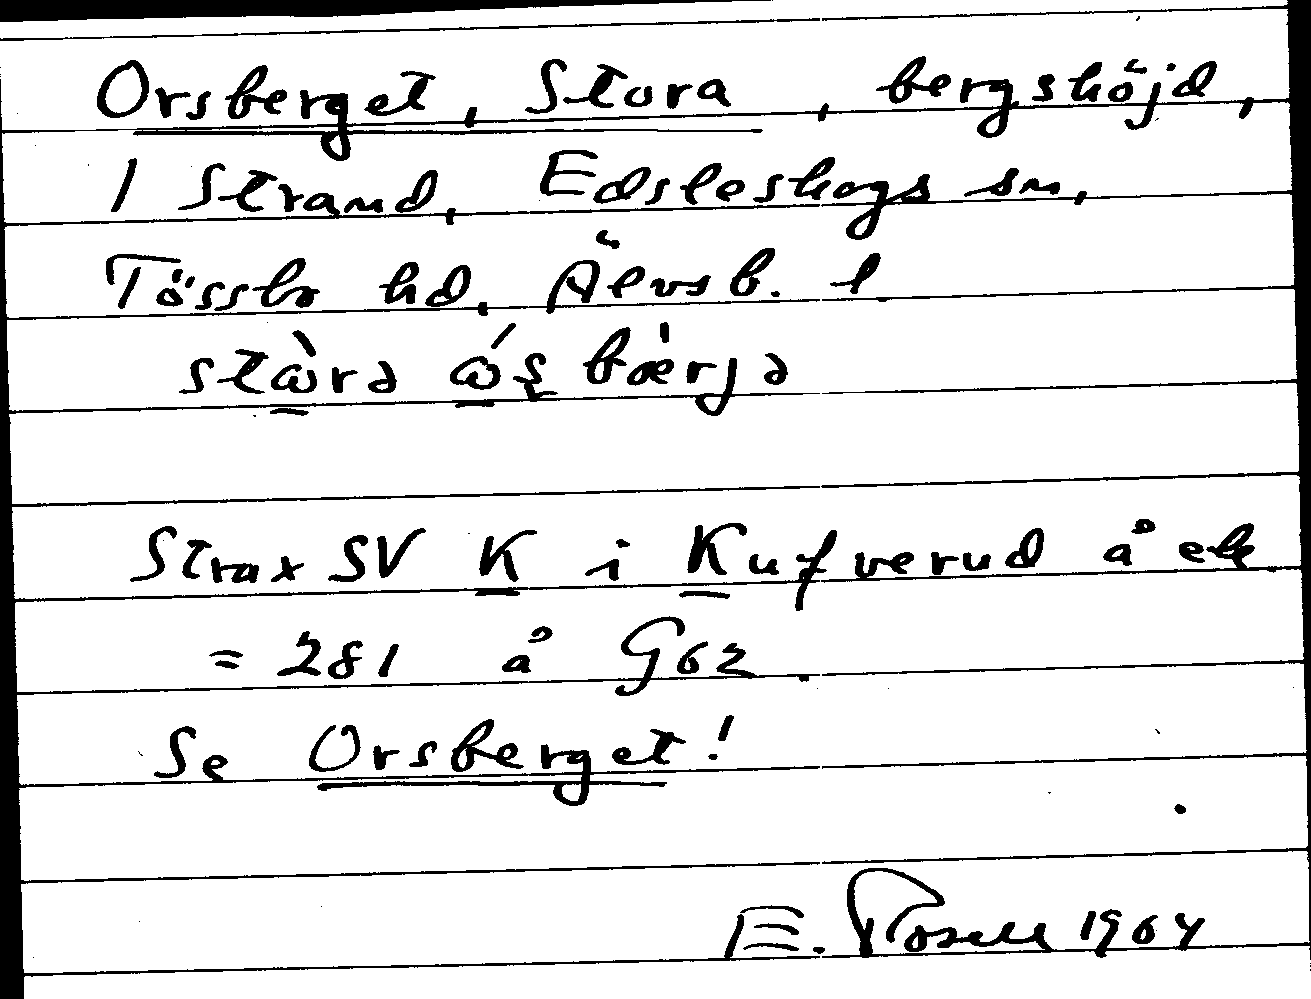 Orsberget, Stora, bergshöjd,
1 Strand, Edsleskogs sn,
Tössbo hd, Älvsb. l
stώ̀rə ώş bǽrjə
Strax SV K i Kufverud å ek
= 281 å G62.
Se Orsberget!
E. Rosell 1964